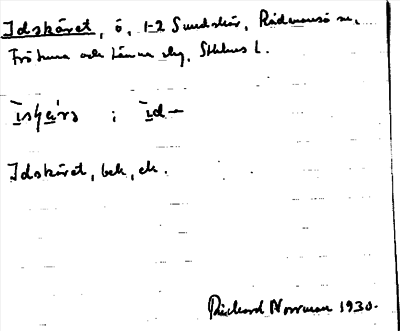 Idskäret, ö, 1-2 Sundskär, Rådmansö sn,
Frötuna och Länna skg, Sthlms l.
i
Idskäret, bek., ek.
Richard Norrman 1930.